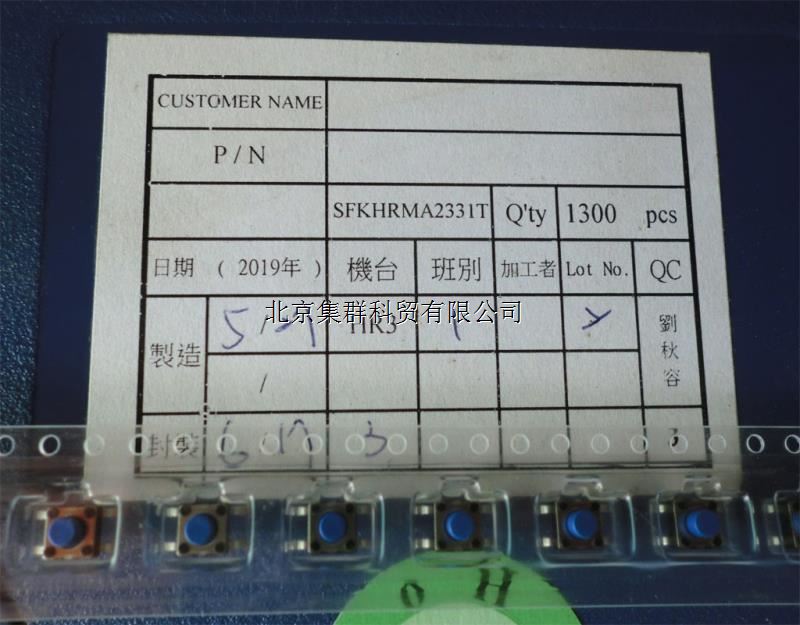 CUSTOMER NAME
P / N
SFKHRMA2331T Q'ty 1300 pcs
日期 ( 2019年 ) 機台 班別 加工者 Lot No. QC
北京集群科贸有限公司
製造 5 / HR3 1 劉秋容
/
封裝 6 17 3 3
O H